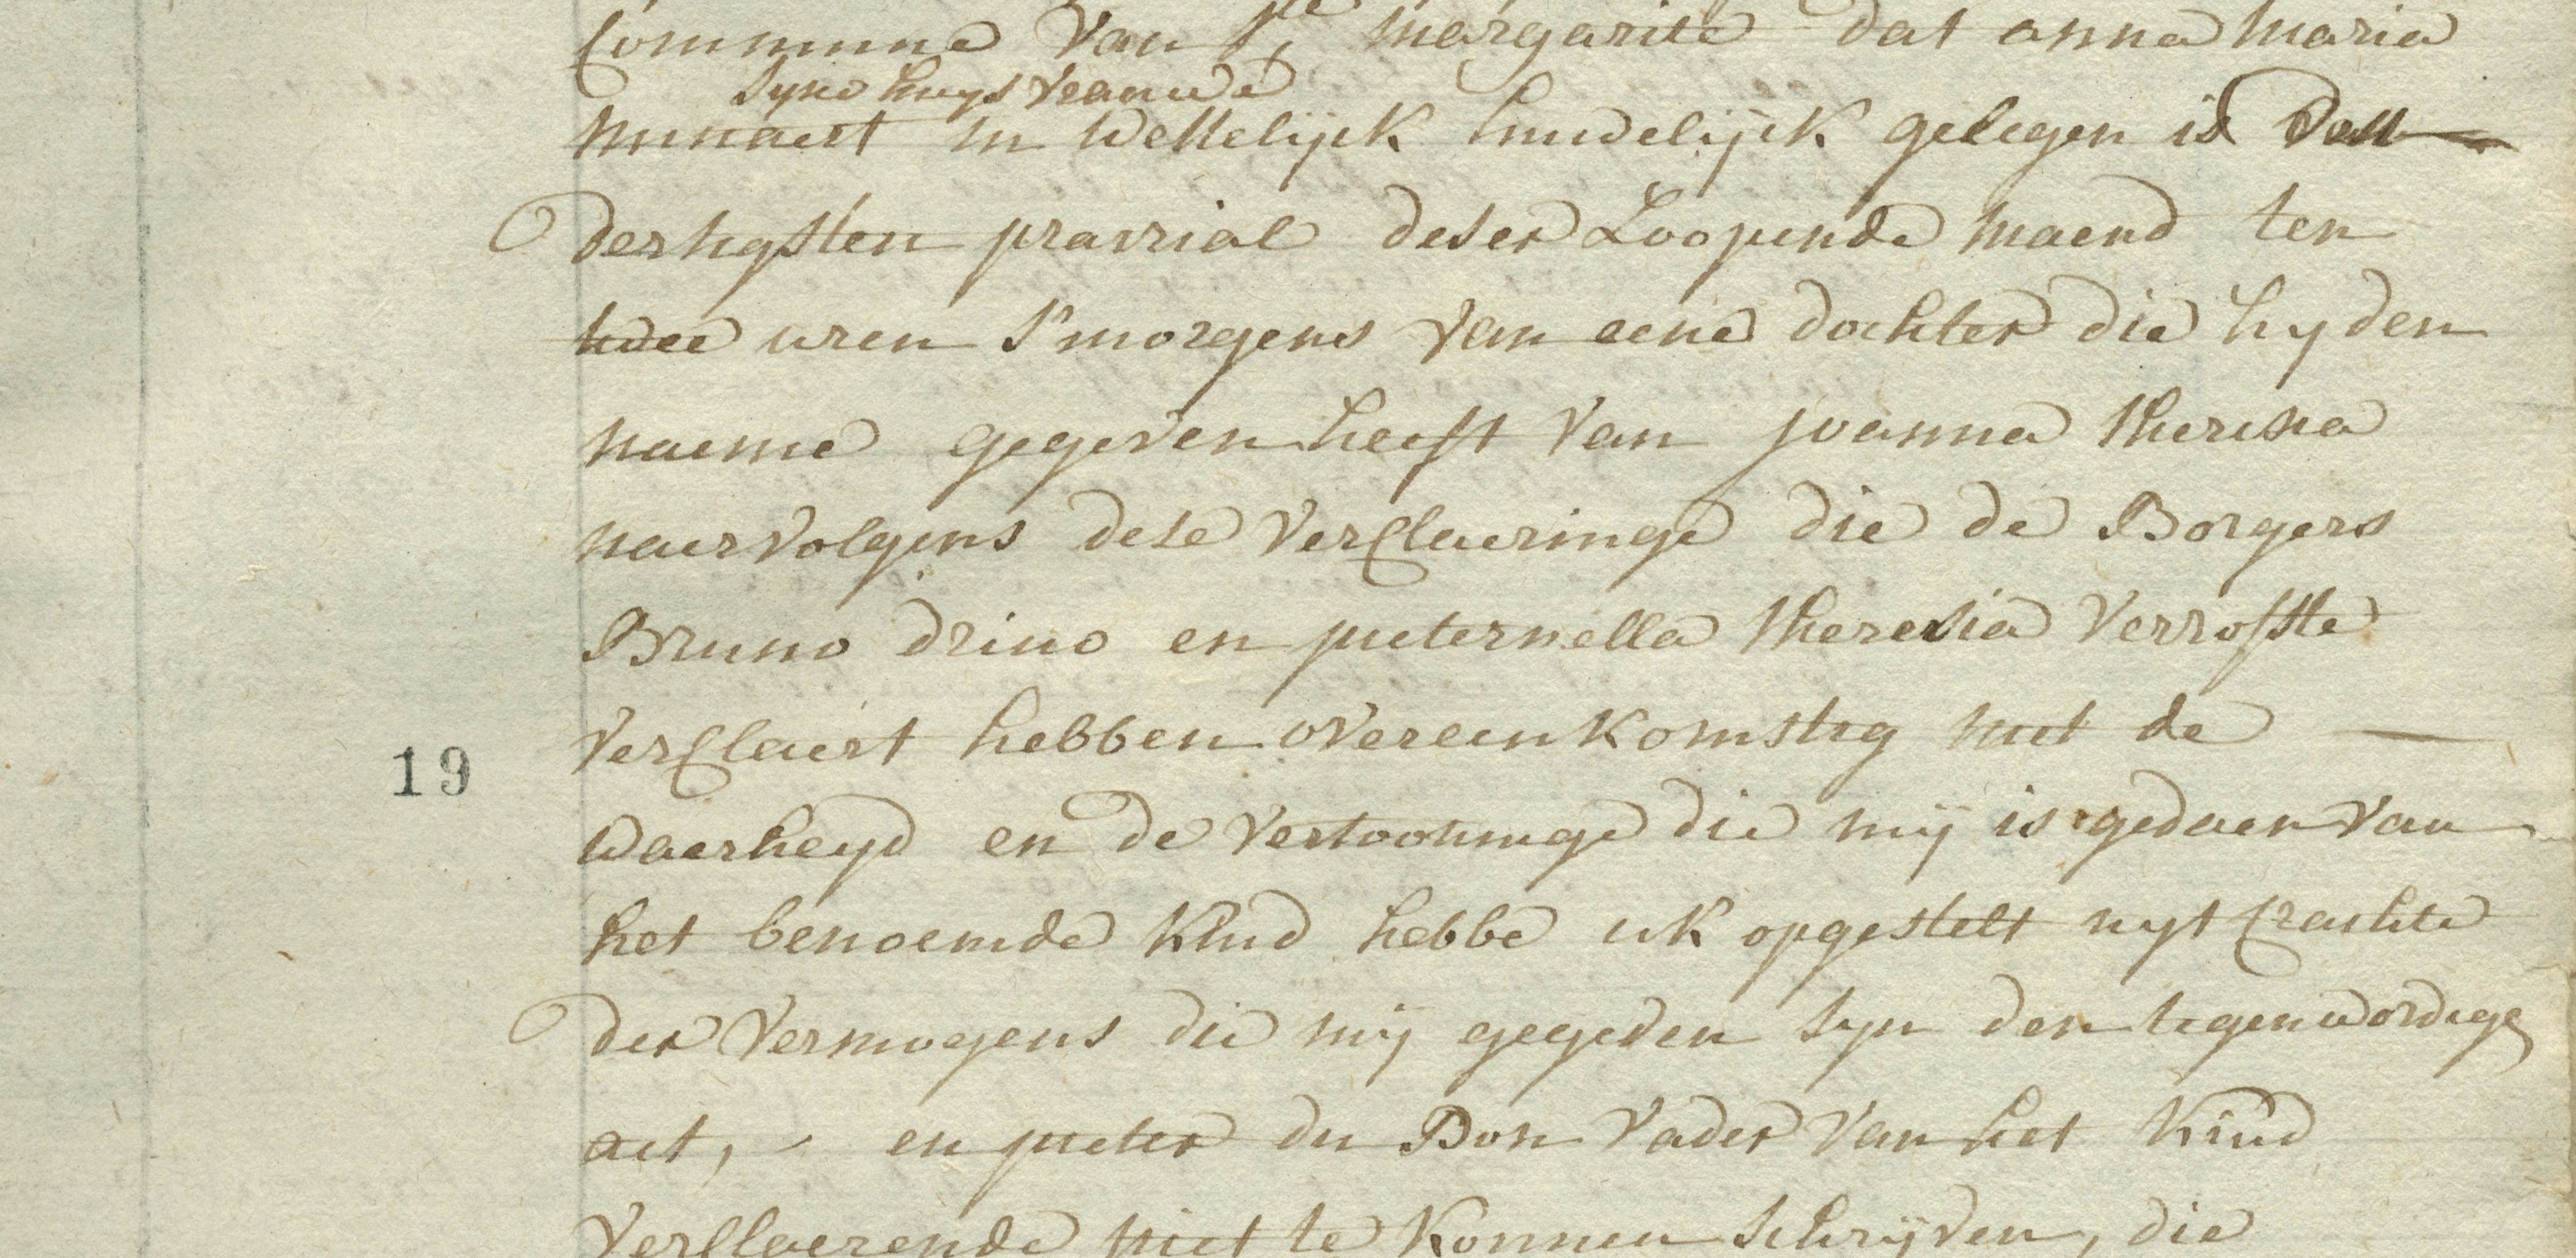 Commune van Ste margarite dat anna maria
syne huys vrauwe
minnaert in wettelijck huwelijck gelegen is van
dertigsten prairial deser Loopende maend ten
twee uren s'morgens van eene dochter die hy den
naeme gegeven heeft van joanna theresia
naervolgens dese verclaeringe die de Borgers
Bruno drino en pieternella theresia verrofste
verclaert hebben overeenkomstig met de
19
waerheyd en de vertooninge die mij is gedaen van
het benoemde kind hebbe ik opgestelt uyt crachte
der vermogens die mij gegeven syn den tegenwordige
act, en pieter du Bon vader van het kind
verclaerende niet te konnen schrijven, die